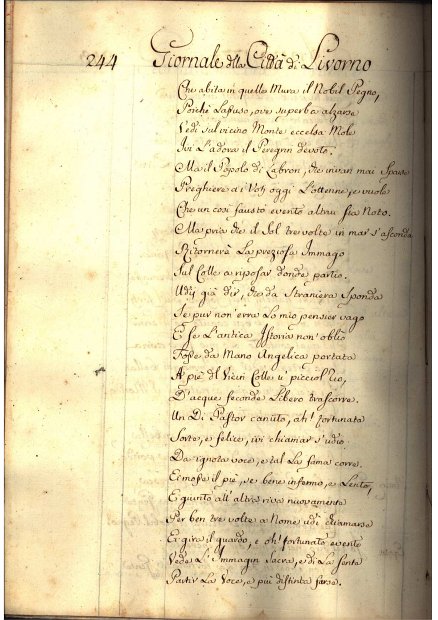 244 Giornale della Città di Livorno
Che abita in quelle Mura il Nobil Pegno,
Poiché Lassuso, ove superba alzarse
Vedi sul vicino Monte eccelsa Mole
Ivi L'adora il Peregrin devoto.
Ma il Popolo di Labron, che invan mai sparse
Preghiere a i Voti oggi L'ottenne, e vuole
Che un così fausto evento altrui sia Noto.
Ma pria che il Sol tre volte in mar s'asconda
Ritornerà La preziosa Immago
Sul Colle a riposar donde partio.
Udij già dir, che da Straniera Sponda
Se pur non'erra Lo mio pensier vago
E se L'antica Istoria non'oblio
Fosse da Mano Angelica portata
A piè del Vicin Colle u' picciol Rio,
D'acque feconde Libero trascorre.
Un Dì Pastor canuto, ah! fortunata
Sorte, e felice, ivi chiamar s'udio
Da ignota voce, e tal La fama corre.
Ei mosse il piè, se bene infermo, e Lento,
E giunto all'altra riva nuovamente
Per ben tre volte a Nome udì chiamarse
Ei gira il guardo, e oh! fortunato evento
Vede L'Immagin Sacra, e di La sente
Partir La Voce, e più distinta farse.